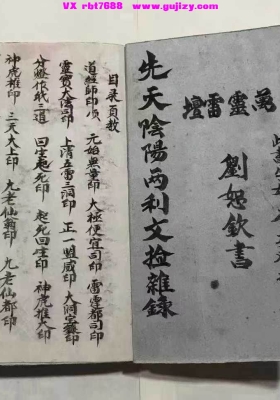 VX rbt7688 www.gujizy.com
萬靈雷壇
劉恕欽書
先天陰陽兩利文檢雜錄
目录頁数
道經師印 元始無量印 太極便宜司印 雷霆都司印
靈寶大法司印 上清五雷司印 正一盟威印 大洞寶籙印
回生起死印 起死回生印 神虎推大印
神虎推印 三天太上印 九老仙翁印 九老仙都印